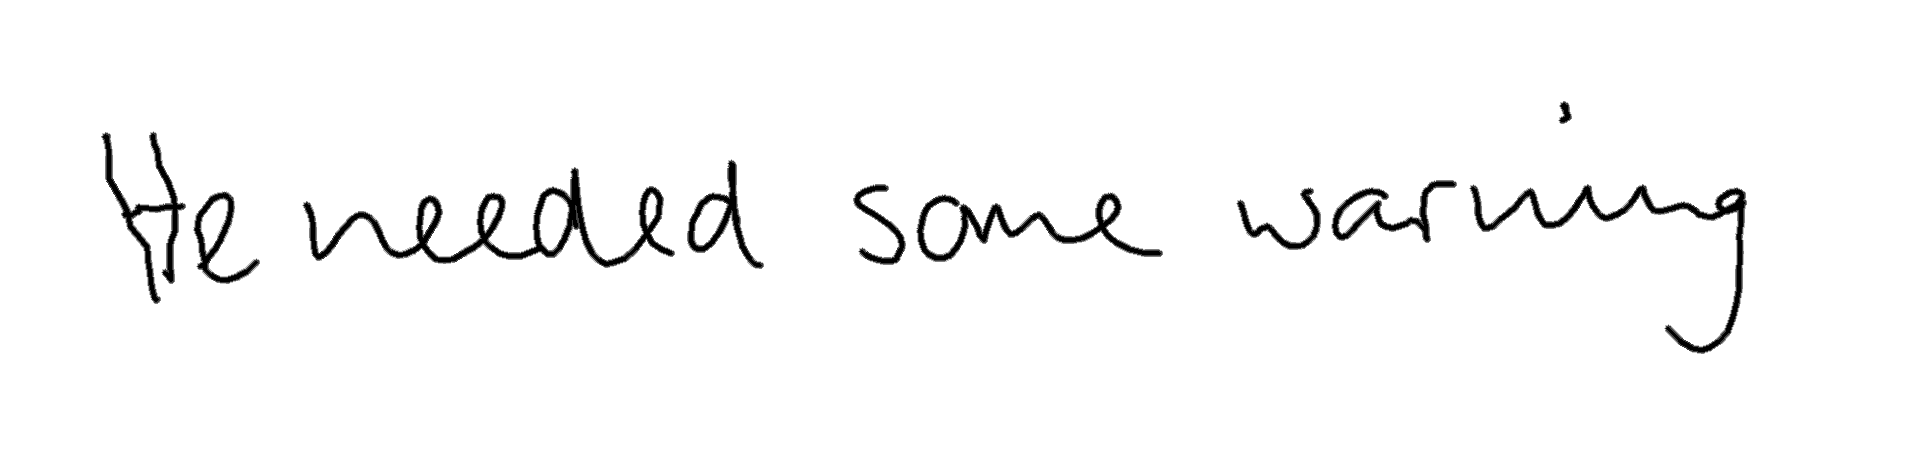 He needed some warning